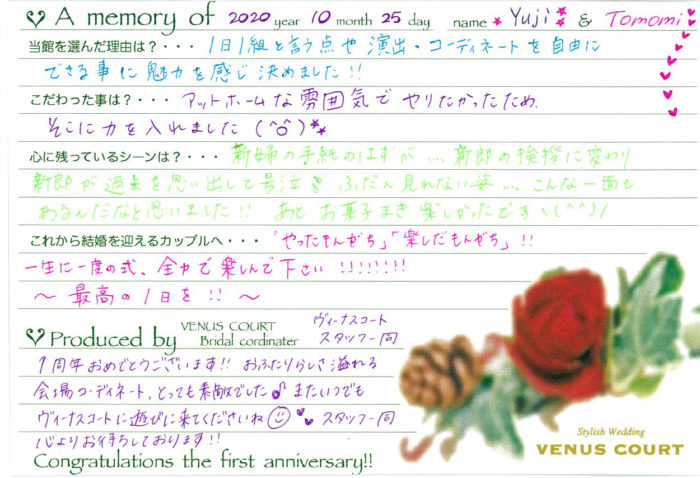 A memory of 2020 year 10 month 25 day name Yuji & Tomomi
当館を選んだ理由は?・・・ 1日1組と言う点や演出・コーディネートを自由に
できる事に魅力を感じ決めました!!
こだわった事は?・・・ アットホームな雰囲気でやりたかったため、
そこに力を入れました(^o^)
心に残っているシーンは?・・・ 新婦の手紙のはずが…、新郎の挨拶に変わり
新郎が過去を思い出して号泣 ふだん見れない姿… こんな一面も
あるんだなと思いました!! あと お菓子まき楽しかったですヽ(^^)ノ
これから結婚を迎えるカップルへ・・・ 「やったもんがち」「楽しだもんがち」!!
一生に一度の式、全力で楽しんで下さい!!!!!!!
~最高の1日を!!~
Produced by VENUS COURT Bridal cordinater ヴィーナスコート スタッフ一同
1周年おめでとうございます!! おふたりらしさ溢れる
会場コーディネート、とっても素敵でした♪ またいつでも
ヴィーナスコートに遊びに来てくださいね スタッフ一同
心よりお待ちしております!!
Congratulations the first anniversary!!
Stylish Wedding
VENUS COURT